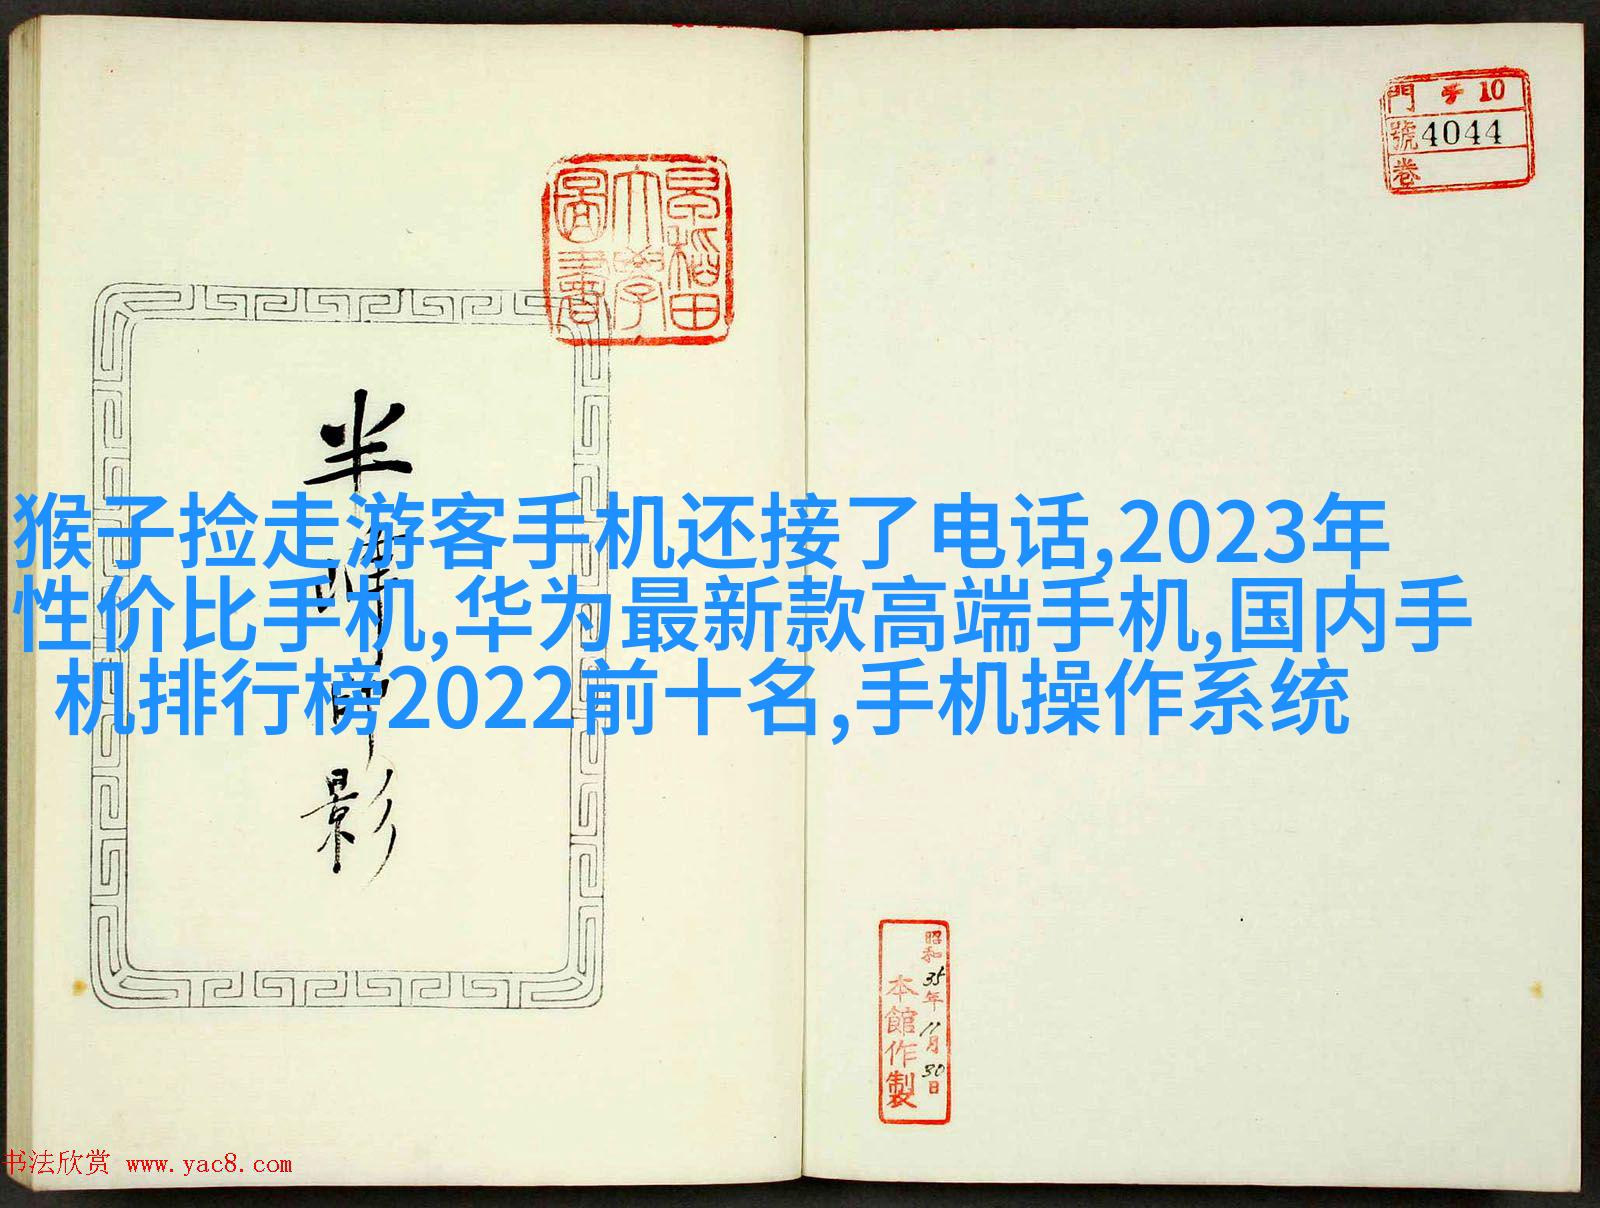 門 チ 10
號 4044
卷
早稲田
大學
圖書
猴子捡走游客手机还接了电话,2023年
性价比手机,华为最新款高端手机,国内手
机排行榜2022前十名,手机操作系统
半
影
昭和35年11月30日
本館作製
书法欣赏 www.yac8.com